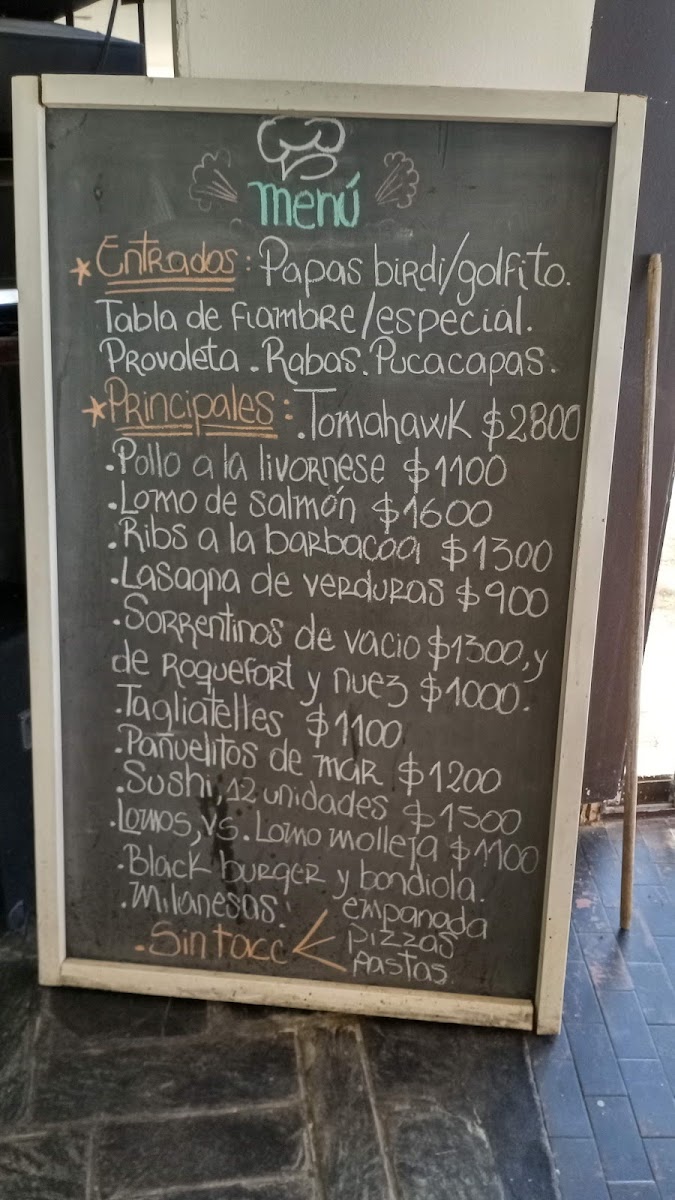 Menú
★ Entradas: Papas birdi/golfito.
Tabla de fiambre/especial.
Provoleta. Rabas. Pucacapas.
★ Principales: .Tomahawk $2800
.Pollo a la livornese $1100
.Lomo de salmón $1600
.Ribs a la barbacoa $1300
.Lasagna de verduras $900
.Sorrentinos de vacio $1300, y
de Roquefort y nuez $1000.
.Tagliatelles $1100
.Pañuelitos de mar $1200
.Sushi, 12 unidades $1500
.Lomos, vs. Lomo molleja $1100
.Black burger y bondiola.
.Milanesas.
.Sin tacc < empanada
pizzas
pastas.